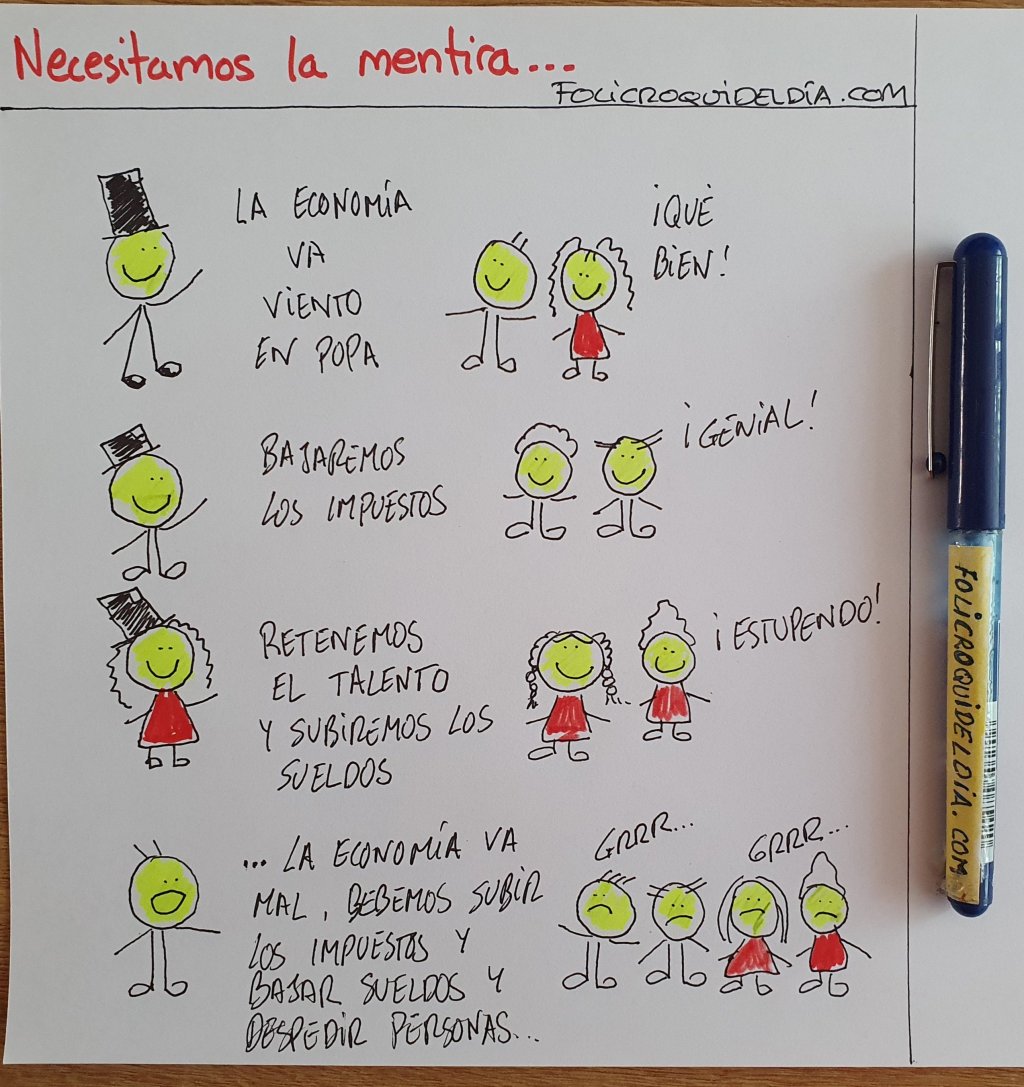 Necesitamos la mentira...
FOLICROQUIDELDÍA.COM
LA ECONOMÍA
VA
VIENTO
EN POPA
¡QUÉ
BIEN!
BAJAREMOS
LOS IMPUESTOS
¡GENIAL!
RETENEMOS
EL TALENTO
Y SUBIREMOS LOS
SUELDOS
¡ESTUPENDO!
... LA ECONOMÍA VA
MAL, DEBEMOS SUBIR
LOS IMPUESTOS Y
BAJAR SUELDOS Y
DESPEDIR PERSONAS...
GRRR...
GRRR...
FOLICROQUIDELDIA.COM